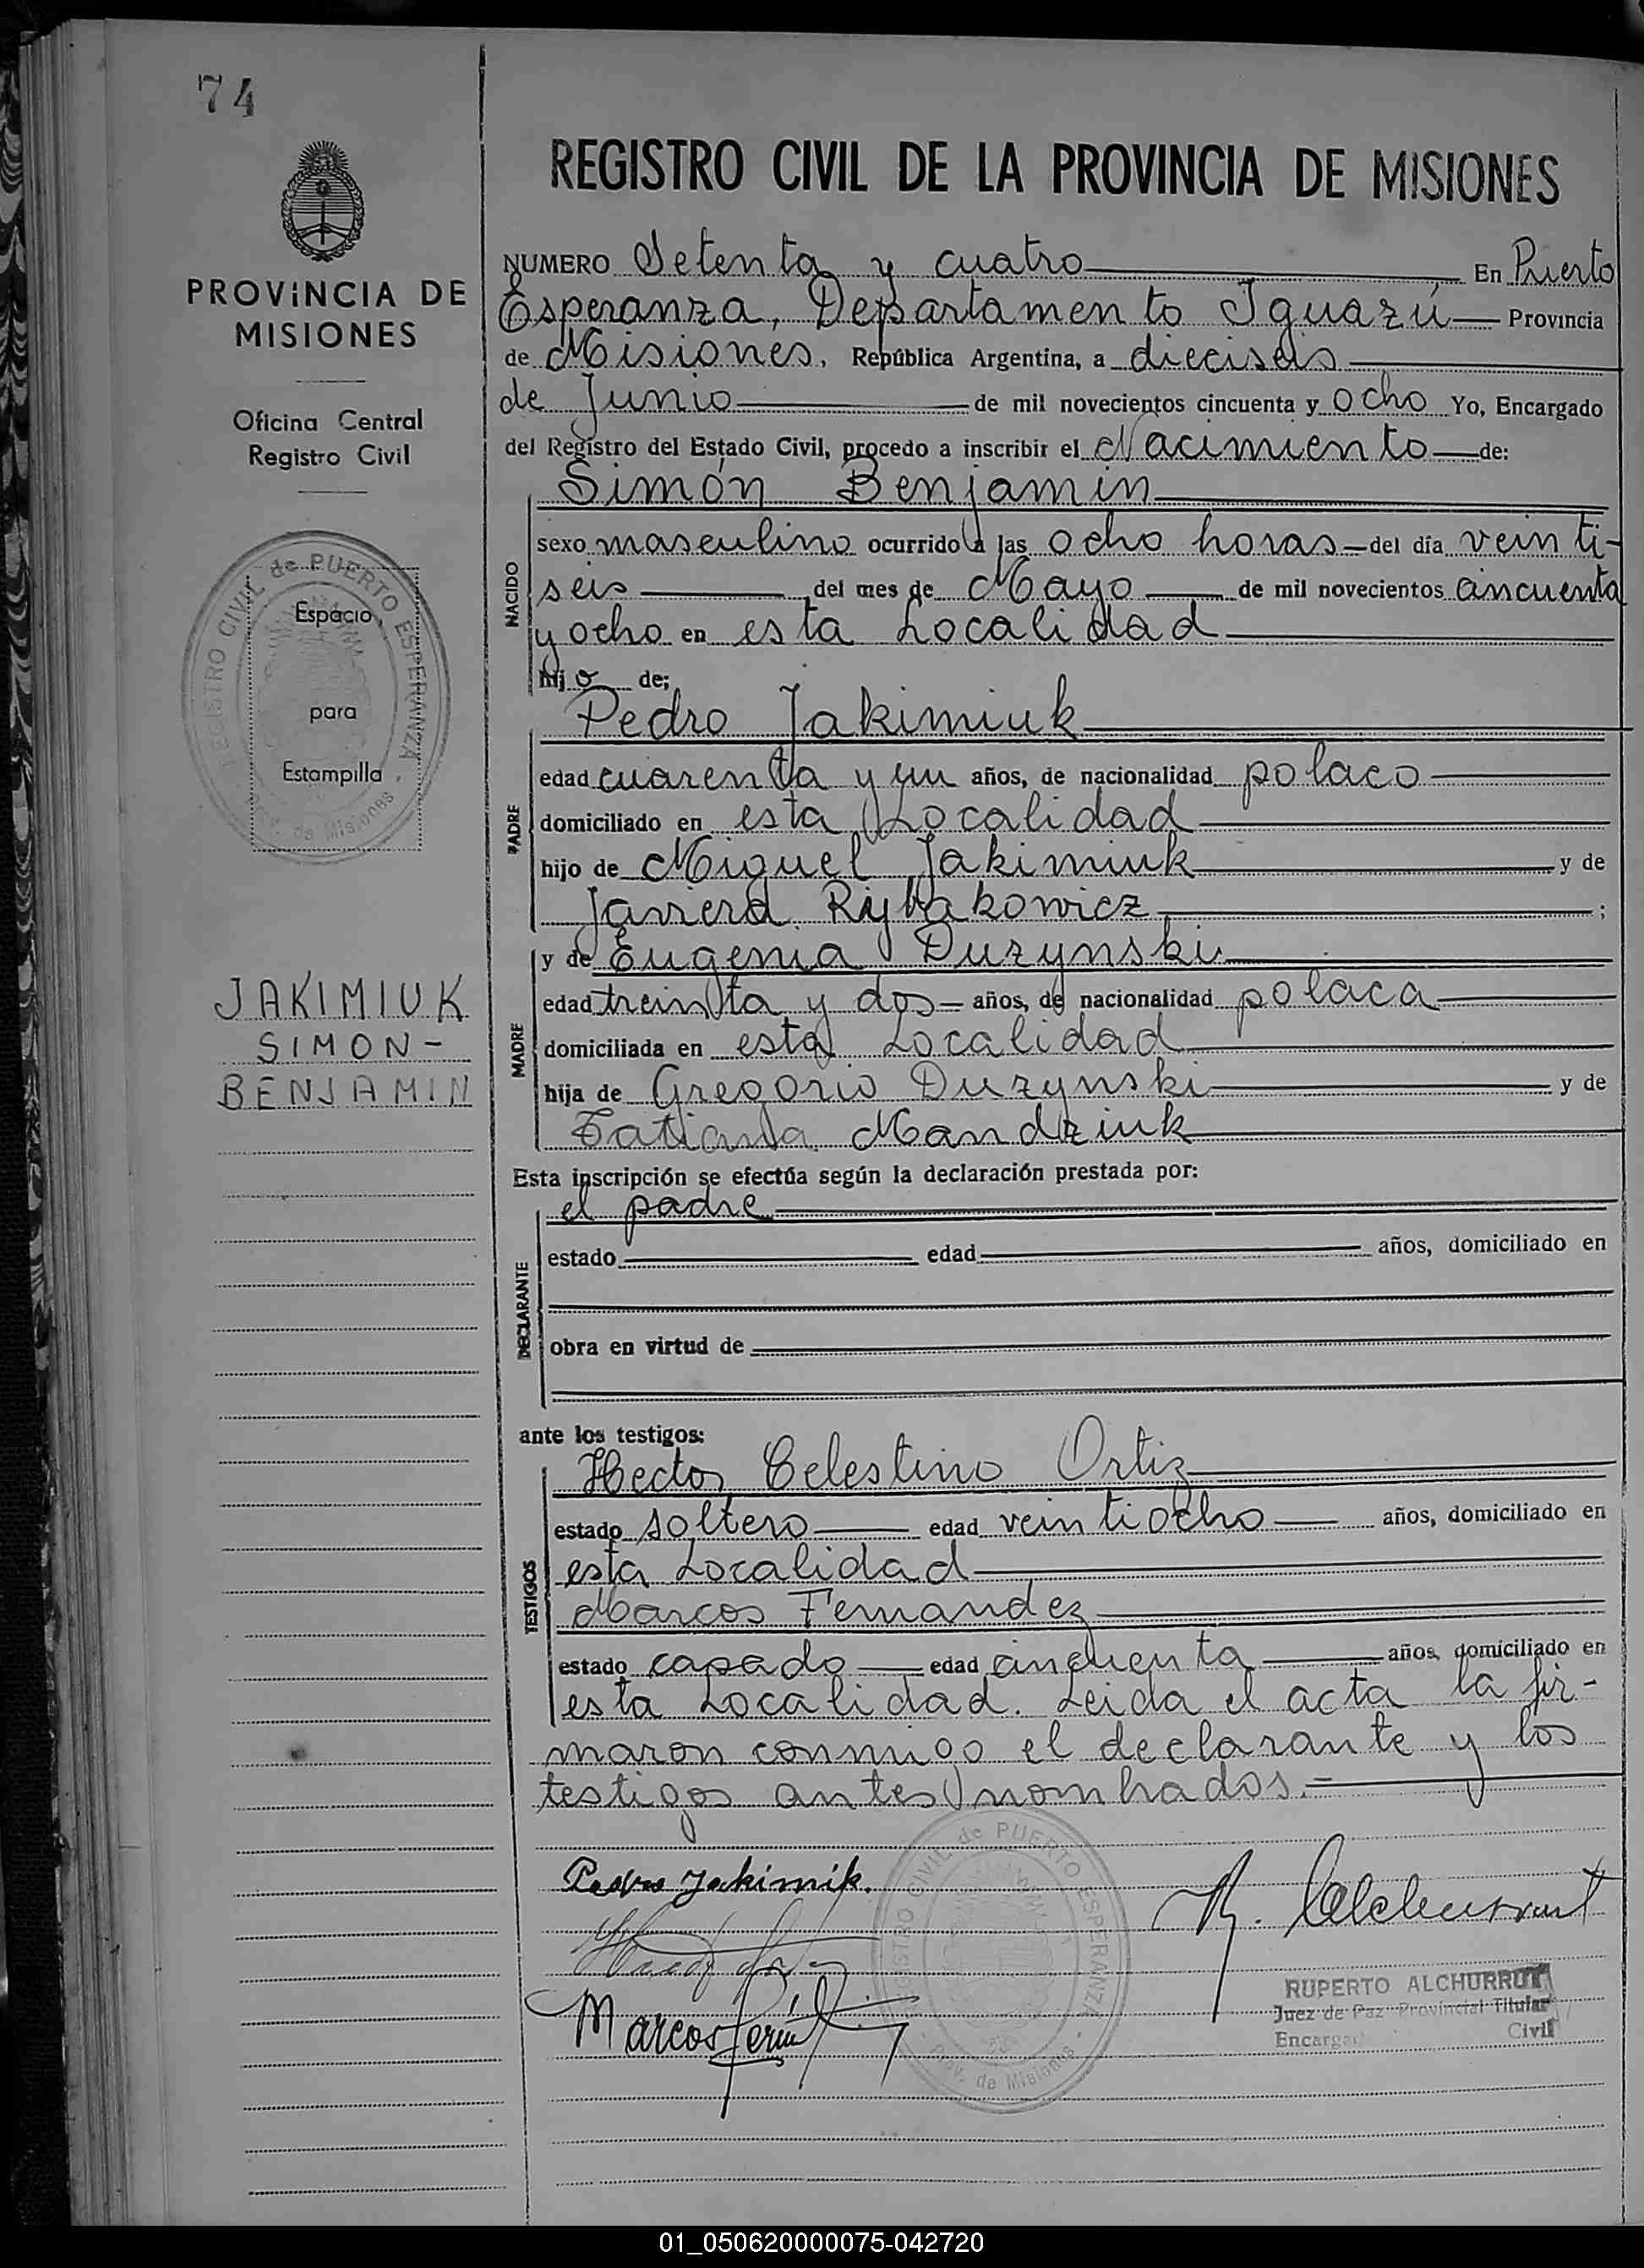 74
PROVINCIA DE
MISIONES
Oficina Central
Registro Civil
REGISTRO CIVIL de PUERTO ESPERANZA
Prov. de Misiones
Espacio
para
Estampilla
JAKIMIUK
SIMON-
BENJAMIN
REGISTRO CIVIL DE LA PROVINCIA DE MISIONES
NUMERO Setenta y cuatro En Puerto
Esperanza, Departamento Iguazú Provincia
de Misiones, República Argentina, a dieciseis
de Junio de mil novecientos cincuenta y ocho Yo, Encargado
del Registro del Estado Civil, procedo a inscribir el Nacimiento de:
Simón Benjamin
NACIDO
sexo masculino ocurrido a las ocho horas del día veinti-
seis del mes de Mayo de mil novecientos cincuenta
y ocho en esta Localidad
hijo de;
Pedro Jakimiuk
PADRE
edad cuarenta y un años, de nacionalidad polaco
domiciliado en esta Localidad
hijo de Miguel Jakimiuk y de
Rybakowicz ;
y de Eugenia Duzynski
MADRE
edad treinta y dos años, de nacionalidad polaca
domiciliada en esta Localidad
hija de Gregorio Duzynski y de
Tatiana Mandziuk
Esta inscripción se efectúa según la declaración prestada por:
el padre
DECLARANTE
estado edad años, domiciliado en
obra en virtud de
ante los testigos:
Hector Celestino Ortiz
TESTIGOS
estado soltero edad veintiocho años, domiciliado en
esta Localidad
Marcos Fernandez
estado casado edad cincuenta años, domiciliado en
esta Localidad. Leida el acta la fir-
maron conmigo el declarante y los
testigos antes nombrados.=
Pedro Jakimik.
R. Alchurrut
Marcos
REGISTRO CIVIL de PUERTO ESPERANZA
Prov. de Misiones
RUPERTO ALCHURRUT
Juez de Paz Provincial Titular
Civil
01_050620000075-042720